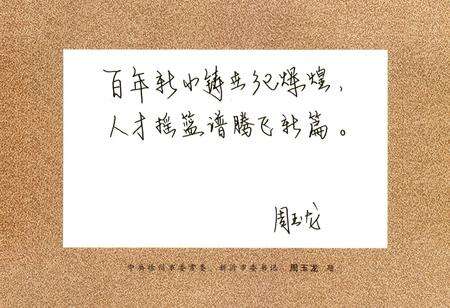 百年新小铸世纪辉煌，
人才摇篮谱腾飞新篇。
周玉龙
中共徐州市委常委、新沂市委书记 周玉龙 题